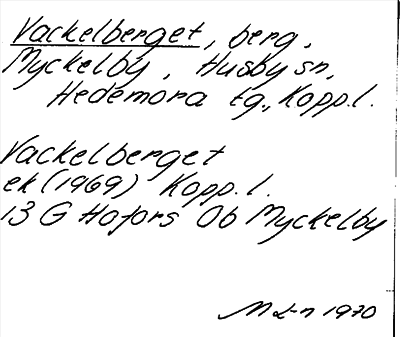 Vackelberget, berg,
Myckelby, Husby sn,
Hedemora tg., Kopp.l.
Vackelberget
ek (1969) Kopp.l.
13 G Hofors 0b Myckelby
1970